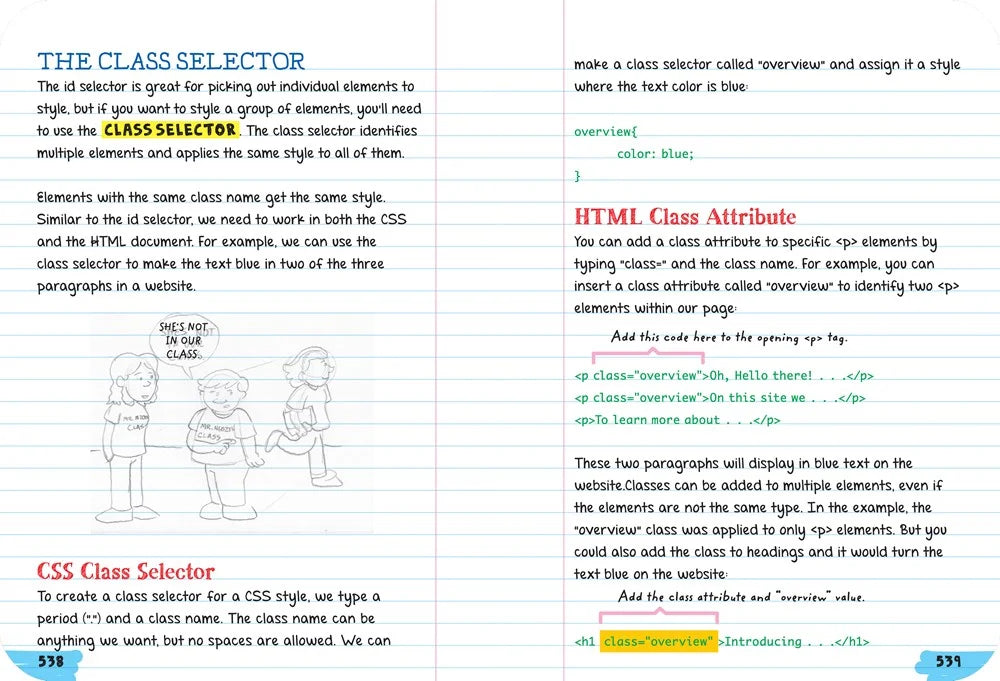 THE CLASS SELECTOR
The id selector is great for picking out individual elements to
style, but if you want to style a group of elements, you'll need
to use the CLASS SELECTOR. The class selector identifies
multiple elements and applies the same style to all of them.
Elements with the same class name get the same style.
Similar to the id selector, we need to work in both the CSS
and the HTML document. For example, we can use the
class selector to make the text blue in two of the three
paragraphs in a website.
SHE'S NOT
IN OUR
CLASS.
CLASS
MR.
CLASS
CSS Class Selector
To create a class selector for a CSS style, we type a
period (".") and a class name. The class name can be
anything we want, but no spaces are allowed. We can
538
make a class selector called "overview" and assign it a style
where the text color is blue:
overview{
color: blue;
}
HTML Class Attribute
You can add a class attribute to specific <p> elements by
typing "class=" and the class name. For example, you can
insert a class attribute called "overview" to identify two <p>
elements within our page:
Add this code here to the opening <p> tag.
<p class="overview">Oh, Hello there! . . .</p>
<p class="overview">On this site we . . .</p>
<p>To learn more about . . .</p>
These two paragraphs will display in blue text on the
website.Classes can be added to multiple elements, even if
the elements are not the same type. In the example, the
"overview" class was applied to only <p> elements. But you
could also add the class to headings and it would turn the
text blue on the website:
Add the class attribute and "overview" value.
<h1 class="overview" >Introducing . . .</h1>
539